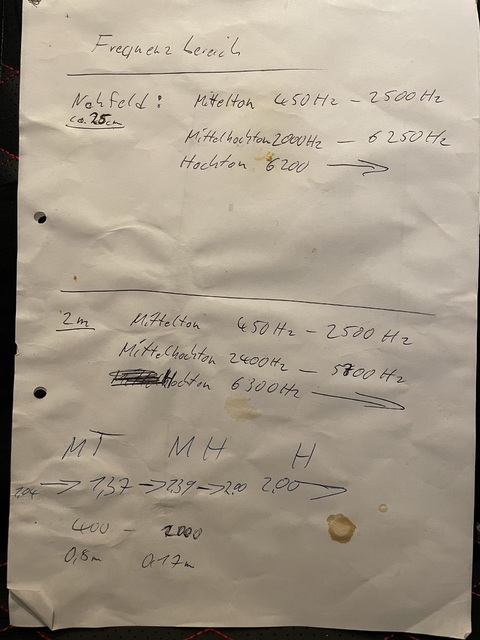 Frequenzbereich
Nahfeld: Mittelton 450Hz – 2500Hz
ca. 25cm
Mittelhochton 2000Hz – 6250Hz
Hochton 6200 →
2m Mittelton 450Hz – 2500Hz
Mittelhochton 2400Hz – 5700Hz
Hochton 6300Hz →
MT MH H
1,04 → 1,37 → 2,00 2,00 →
400 – 2000
0,8m 0,17m